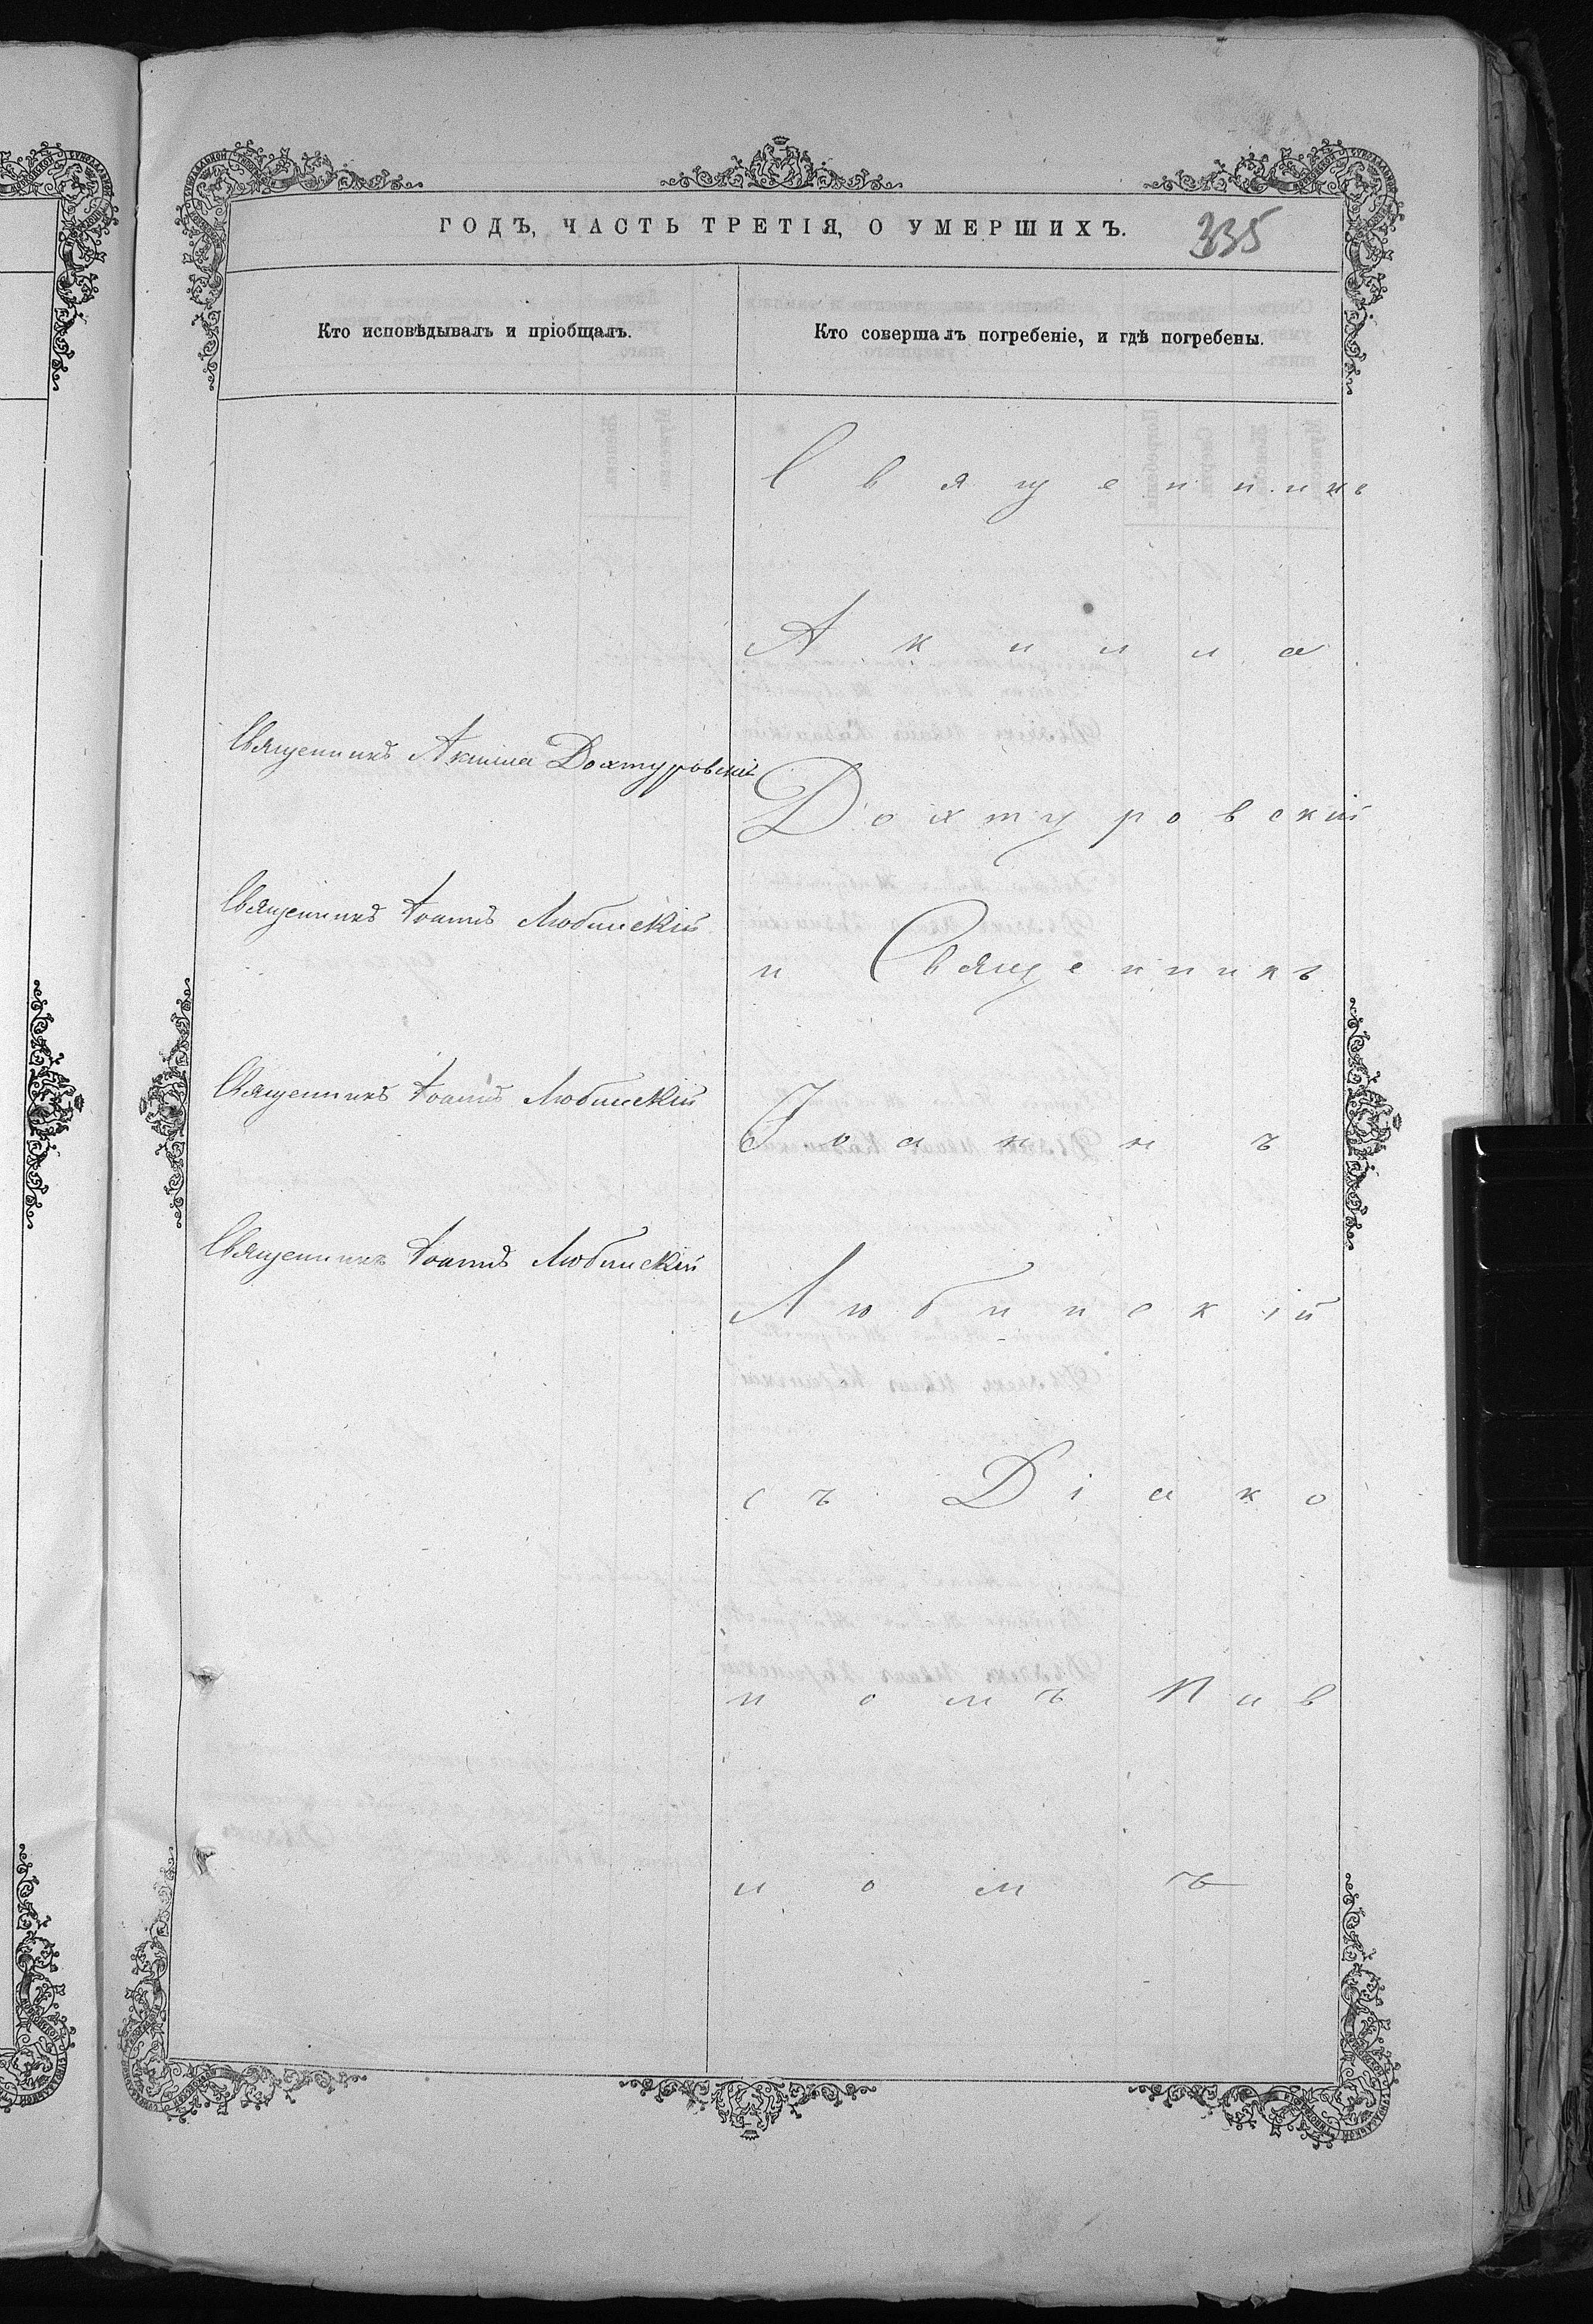 ГОДЪ, ЧАСТЬ ТРЕТІЯ, О УМЕРШИХЪ.
335
Кто исповѣдывалъ и пріобщалъ.
Кто совершалъ погребеніе, и гдѣ погребены.
Священникъ Акила Дохтуровскій
Священникъ Іоаннъ Любинскій
Священникъ Іоаннъ Любинскій
Священникъ Іоаннъ Любинскій
Священникъ
Акила
Дохтуровскій
и Священникъ
Іоаннъ
Любинскій
съ Діако
номъ
номъ